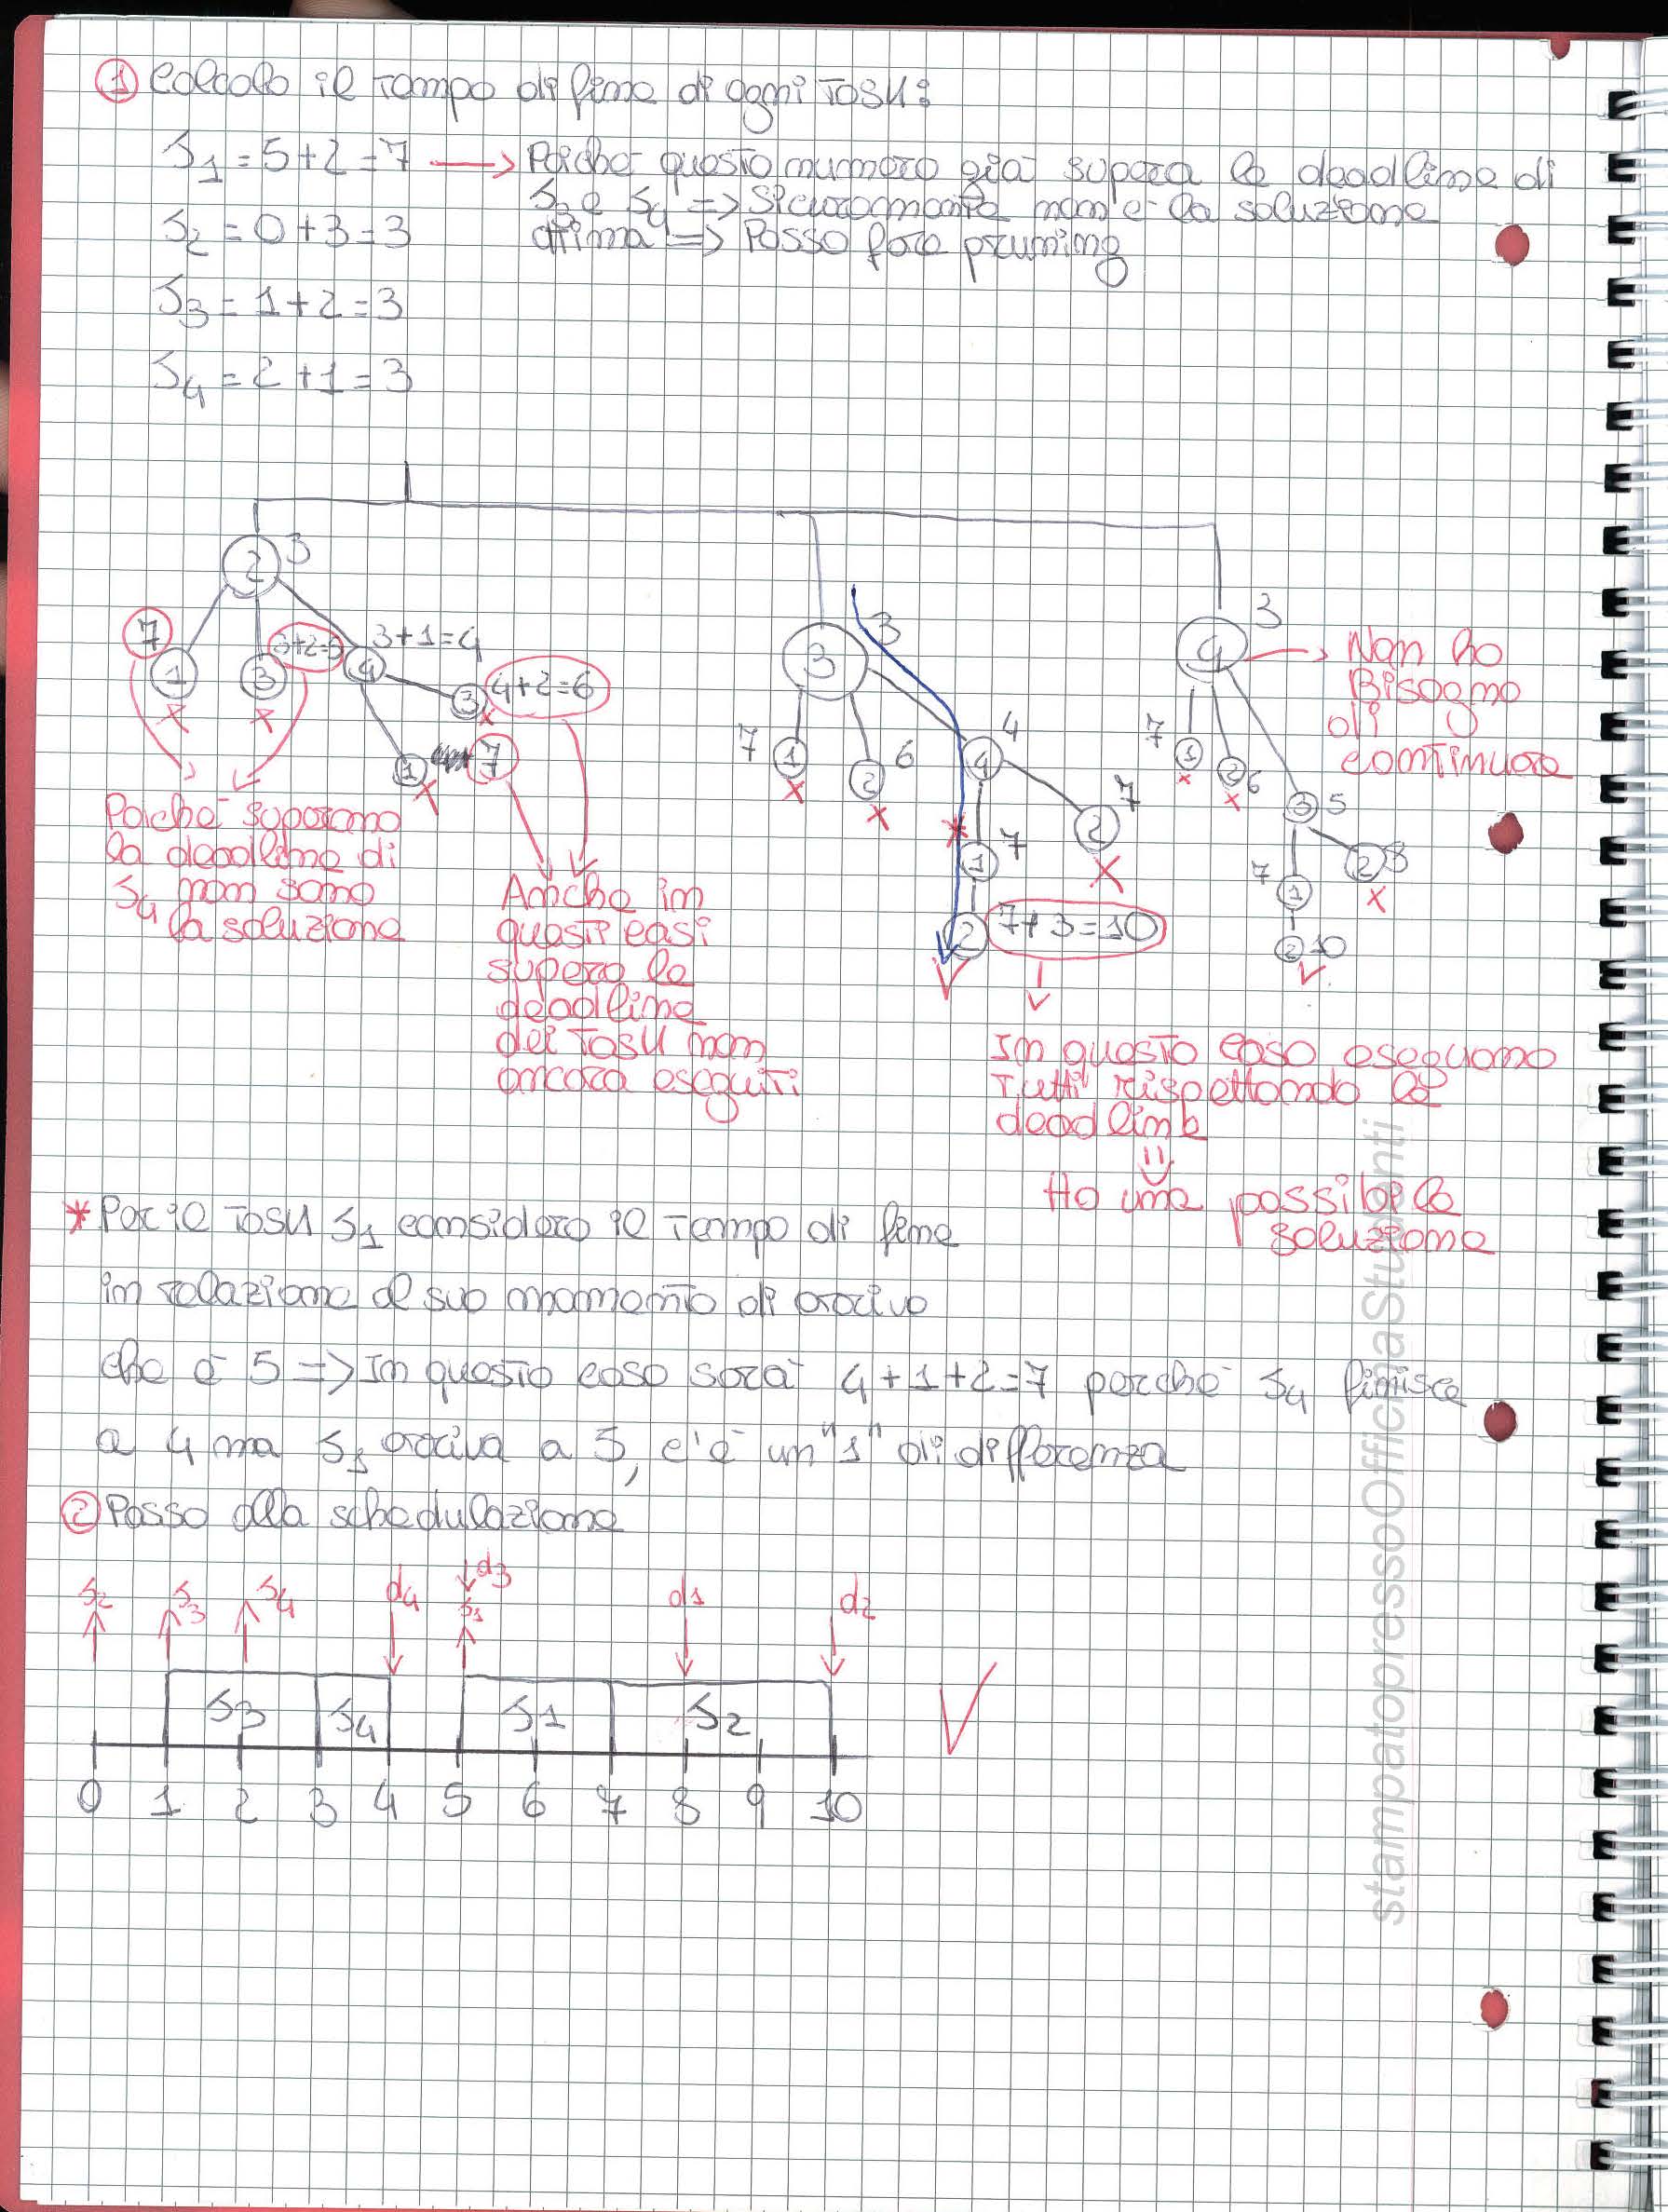 ① Calcolo il tempo di fine di ogni Task:
S1 = 5+2=7 → Poiché questo numero già supera le deadline di
S3 e S4 => Sicuramente non è la soluzione
ottima => Posso fare pruning
S2 = 0+3=3
S3 = 1+2=3
S4 = 2+1=3
2 3
7 1 x
3+2=5 3 x
4 3+1=4
3 4+2=6 x
1 7 x
Poiché superano
la deadline di
S4 non sono
la soluzione
Anche in
questi casi
supero le
deadline
dei Task non
ancora eseguiti
3 3
7 1 x
2 6 x
4 4
* 1 7
2 7 x
2 7+3=10
In questo caso eseguono
Tutti rispettando le
deadline
=>
Ho una possibile
soluzione
4 3 → Non ho
Bisogno
di
continuare
7 1 x
2 6 x
3 5
7 1
2 8 x
2 10
* Per il Task S1 considero il Tempo di fine
in relazione al suo momento di arrivo
che è 5 => In questo caso sarà 4+1+2=7 perché S4 finisce
a 4 ma S1 arriva a 5, c'è un "1" di differenza
② Passo alla schedulazione
S2 S3 S4 d4 d3 S1 d1 d2
S3 S4 S1 S2
0 1 2 3 4 5 6 7 8 9 10
stampatopressoOfficinaStudenti